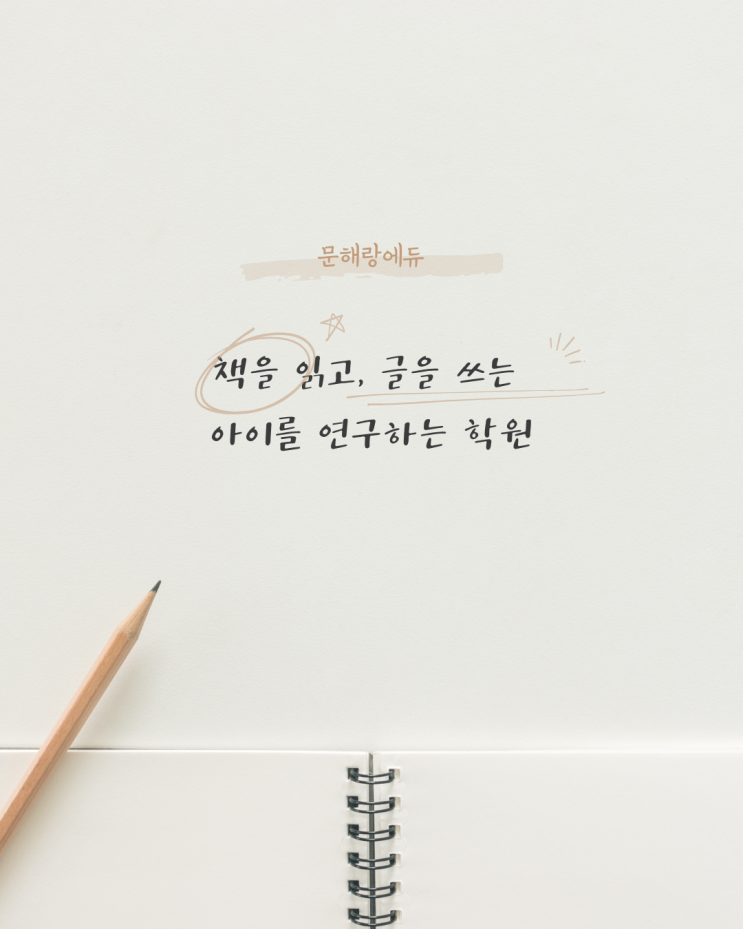 문해랑에듀
책을 읽고, 글을 쓰는
아이를 연구하는 학원